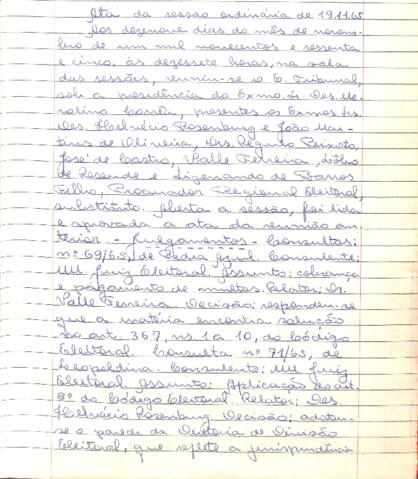 Ata da sessão ordinária de 19.11.65
Aos dezenove dias do mês de novem-
bro de um mil novecentos e sessenta
e cinco, às dezessete horas, na sala
das sessões, reuniu-se o E. Tribunal,
sob a presidência do Exmo. Sr. Des. Me-
rolino Corrêa, presentes os Exmos. Srs.
Des. Helvécio Rosenburg e João Mar-
tins de Oliveira, Drs. Régulo Peixoto,
José de Castro, Valle Ferreira,
de Resende e Lizenando de Barros
Filho, Procurador Regional Eleitoral,
substituto. Aberta a sessão, foi lida
e aprovada a ata da reunião an-
terior. - Julgamentos - Consultas:
nº 69/65, de Pedra Azul. Consulente:
MM Juiz Eleitoral. Assunto: cobrança
e pagamento de multas. Relator: Dr.
Valle Ferreira. Decisão: respondeu-se
que a matéria encontra solução
no art. 367, ns. 1 a 10, do Código
Eleitoral. Consulta nº 71/65, de
Leopoldina. Consulente: MM Juiz
Eleitoral. Assunto: Aplicação do art.
do Código Eleitoral. Relator: Des.
Helvécio Rosenburg. Decisão: adotou-
se o parecer da Diretoria de Divisão
Eleitoral, que reflete a jurisprudência